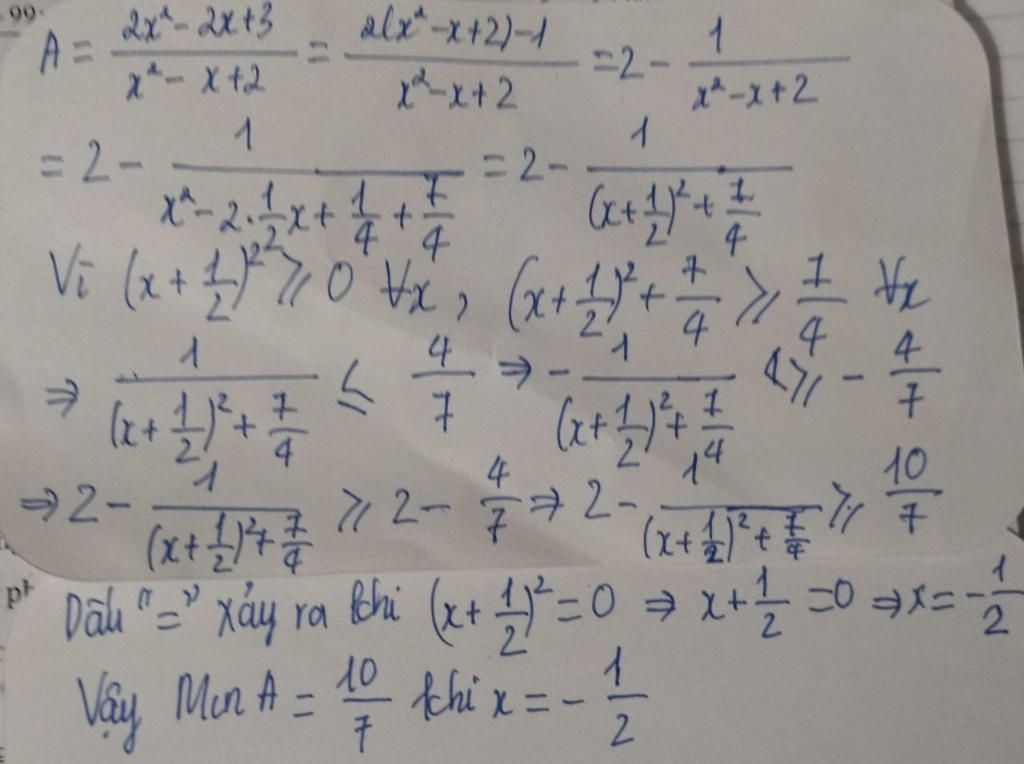 99
A = \frac{2x² - 2x + 3}{x² - x + 2} = \frac{2(x² - x + 2) - 1}{x² - x + 2} = 2 - \frac{1}{x² - x + 2}
= 2 - \frac{1}{x² - 2 \cdot \frac{1}{2}x + \frac{1}{4} + \frac{7}{4}} = 2 - \frac{1}{(x + \frac{1}{2})² + \frac{7}{4}}
Vì (x + \frac{1}{2})² ≥ 0 ∀x, (x + \frac{1}{2})² + \frac{7}{4} ≥ \frac{7}{4} ∀x
⇒ \frac{1}{(x + \frac{1}{2})² + \frac{7}{4}} ≤ \frac{4}{7} ⇒ - \frac{1}{(x + \frac{1}{2})² + \frac{7}{4}} ≥ - \frac{4}{7}
⇒ 2 - \frac{1}{(x + \frac{1}{2})² + \frac{7}{4}} ≥ 2 - \frac{4}{7} ⇒ 2 - \frac{1}{(x + \frac{1}{2})² + \frac{7}{4}} ≥ \frac{10}{7}
Dấu "=" xảy ra khi (x + \frac{1}{2})² = 0 ⇒ x + \frac{1}{2} = 0 ⇒ x = - \frac{1}{2}
Vậy Min A = \frac{10}{7} khi x = - \frac{1}{2}